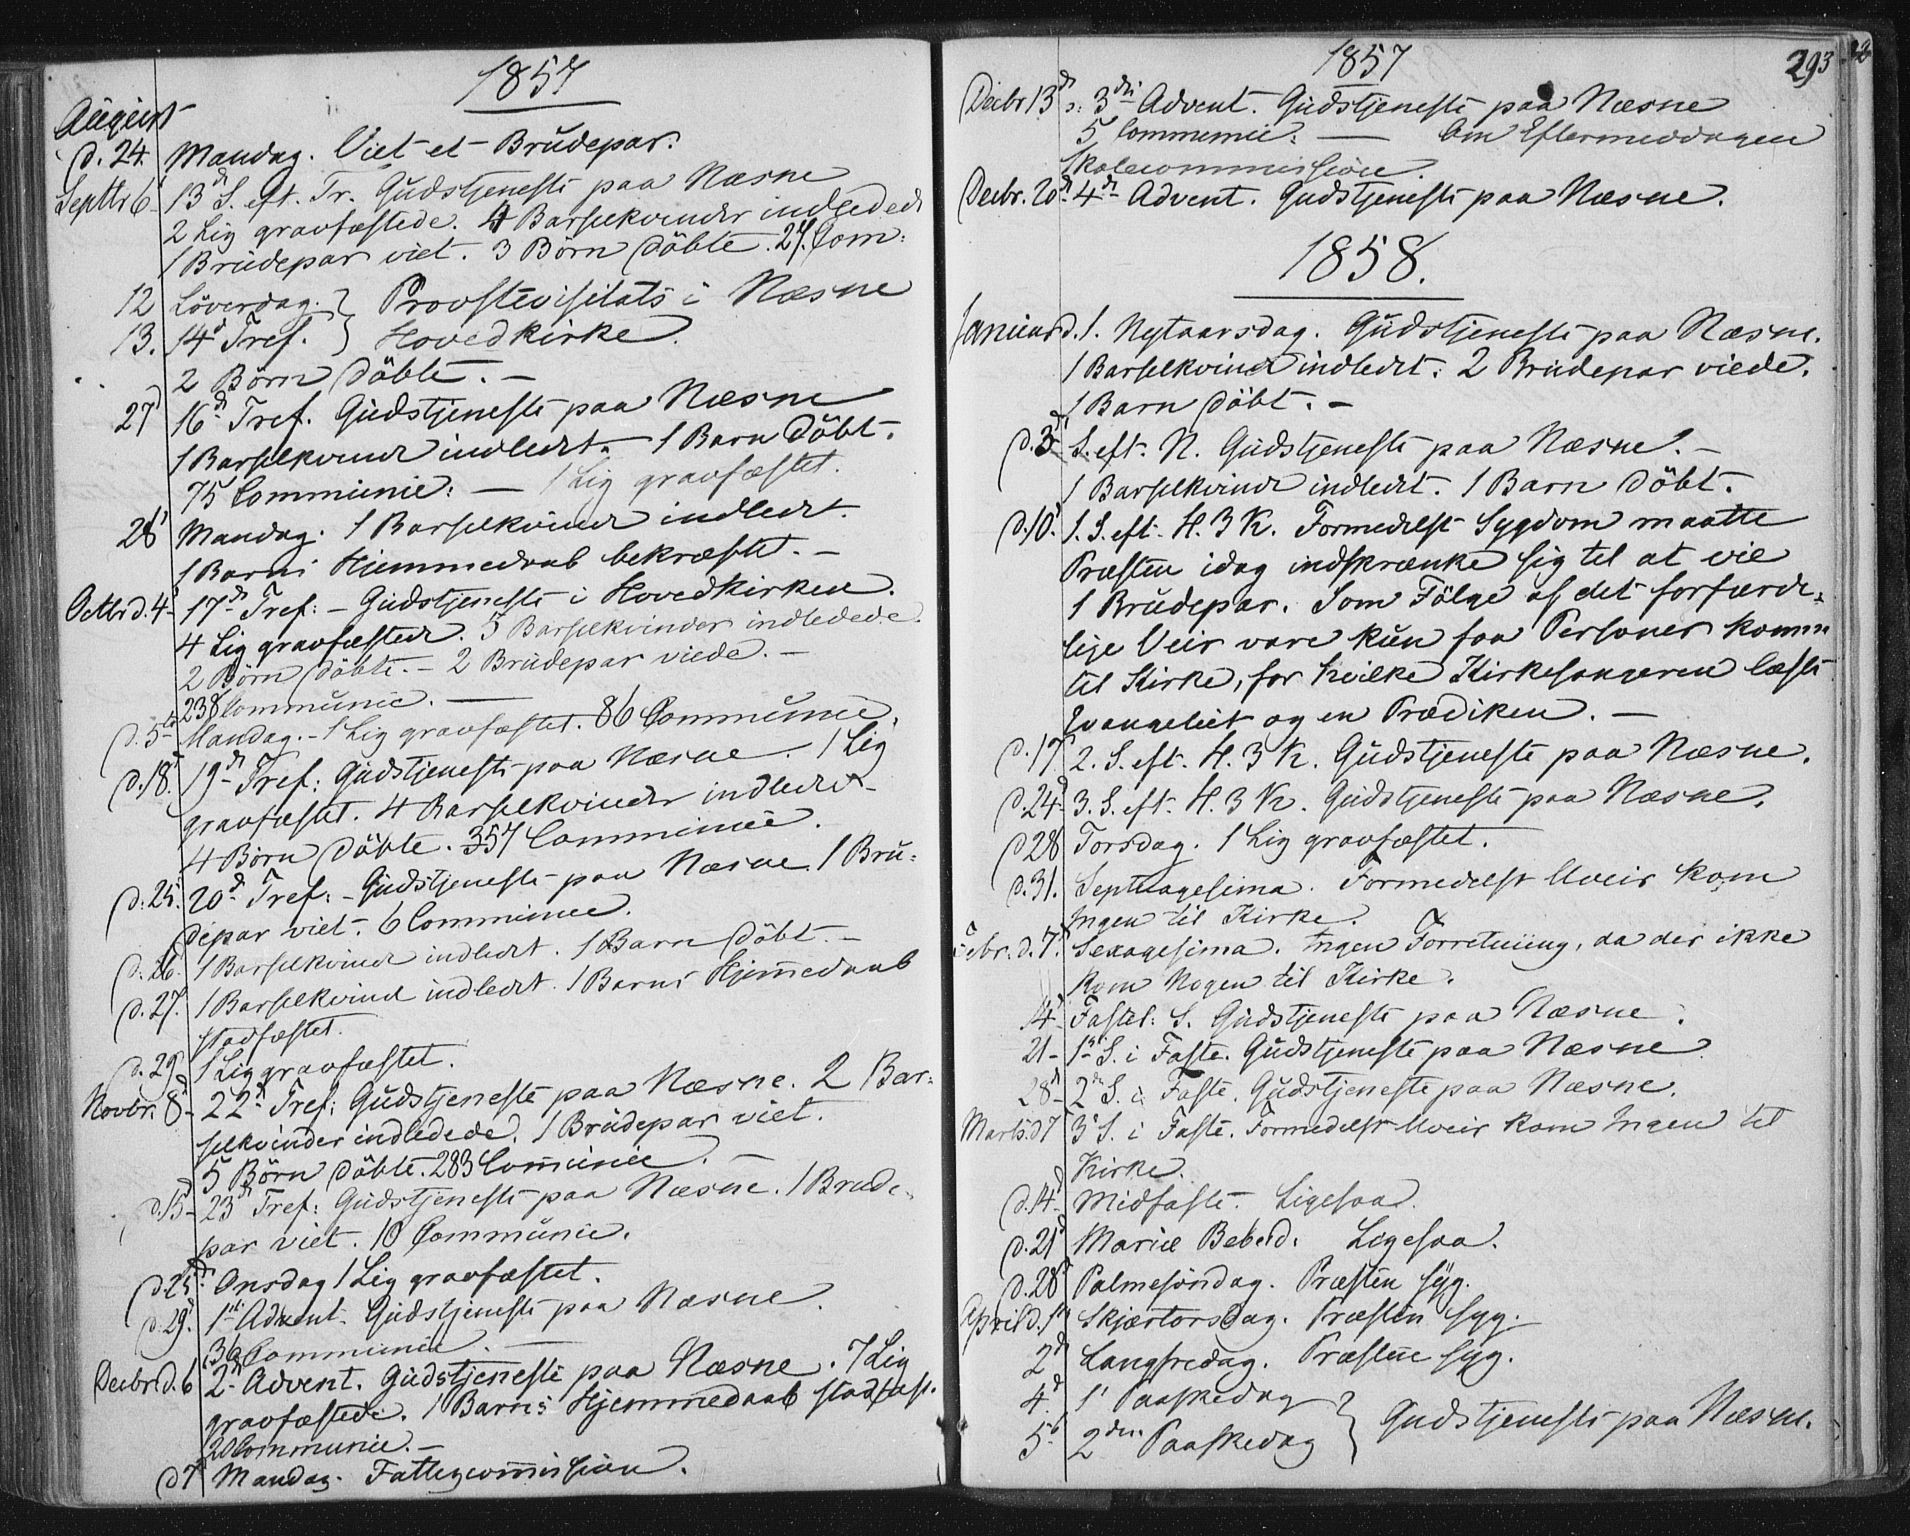 1857
August
d. 24. Mandag. Viet et Brudepar.
Septbr 6 13d S. eft. Tr. Gudstjeneste paa Næsne
2 Lig gravfæstede. 4 Barselkvinder indledede
1 Brudepar viet. 3 Börn döbte. 27. Com:
12 Löverdag. } Provstevisitats i Næsne
13. 14d Tref. } Hovedkirke.
2 Börn döbte. –
27 16d Tref. Gudstjeneste paa Næsne
1 Barselkvinde indledet. – 1 Barn döbt.
75 Communic: — 1 Lig gravfæstet.
28 Mandag. 1 Barselkvinde indledet.
1 Barns Hjemmedaab bekræftet. –
Octbr d. 4 17d Tref: – Gudstjeneste i Hovedkirken.
4 Lig gravfæstede. 5 Barselkvinder indledede.
2 Börn döbte. – 2 Brudepar viede. –
238 Communic. —
d. 5 Mandag. – 1 Lig gravfæstet. 86 Communic.
d. 18. 19d Tref: Gudstjeneste paa Næsne. 1 Lig
gravfæstet. 4 Barselkvinder indledet
4 Börn döbte. 357 Communic.
d. 25. 20d Tref: – Gudstjeneste paa Næsne. 1 Bru:
depar viet. 6 Communic.
d. 26. 1 Barselkvinde indledet. 1 Barn döbt. –
d. 27. 1 Barselkvind indledet. 1 Barns Hjemedaab
stadfæstet.
d. 29 1 Lig gravfæstet.
Novbr. 8 22d Tref: Gudstjeneste paa Næsne. 2 Bar:
selkvinder indledede. 1 Brudepar viet.
5 Börn döbte. 283 Comunic. –
d. 15 23d Tref: Gudstjeneste paa Næsne. 1 Brude-
par viet. 10 Communic.
d. 25. Onsdag 1 Lig gravfæstet.
d. 29. 1ste Advent. Gudstjeneste paa Næsne.
36 Communic. —
Decbr. d. 6 2d Advent. Gudstjeneste paa Næsne. 7 Lig
gravfæstede. 1 Barns Hjemmedaab stadfæst.
20 Communic. –
d 7 Mandag. Fattigcomission.
293
1857
Decbr 13d s: 3die Advent. Gudstjeneste paa Næsne
5 Communic: — Om Eftermiddagen
Skolecommission.
Decbr. 20d 4de Advent. Gudstjeneste paa Næsne.
1858.
Januar d. 1. Nytaarsdag. Gudstjeneste paa Næsne.
1 Barselkvinde indledet. 2 Brudepar viede.
1 Barn döbt. –
d. 3d S. eft. N. Gudstjeneste paa Næsne. –
1 Barselkvinde indledet. 1 Barn döbt.
d. 10. 1. S. eft. H. 3 K. Formedelst Sygdom maatte
Præsten idag indskrænke sig til at vie
1 Brudepar. Som Fölge af det forfærde:
lige Veir vare kun faa Personer komne
til Kirke, for hvilke Kirkesangeren læste
Evangeliet og en Prædiken. —
d. 17 2. S. eft. H. 3 K. Gudstjeneste paa Næsne.
d. 24 3. S. eft. H. 3 K. Gudstjeneste paa Næsne.
d 28 Torsdag. 1 Lig gravfæstet.
d. 31. Septuagesima. Formedelst Uveir kom
Ingen til Kirke.
Febr. d. 7. Sexagesima. Ingen Forretning, da der ikke
kom Nogen til Kirke.
14 Fastel: S. Gudstjeneste paa Næsne.
21 – 1ste S. i Faste. Gudstjeneste paa Næsne.
28d – 2d S. i Faste. Gudstjeneste paa Næsne.
Marts. d 7 3d S. i Faste. Formedelst Uveir kom Ingen til
Kirke.
d. 14d Midfaste. Ligesaa.
d. 21d Mariæ Bebud. Ligesaa.
d. 28d Palmesöndag. Præsten syg.
April d. 1d Skjærtorsdag. Præsten syg.
2d Langfredag. Præsten syg.
4d 1ste Paaskedag }
5d 2den Paaskedag } Gudstjeneste paa Næsne.